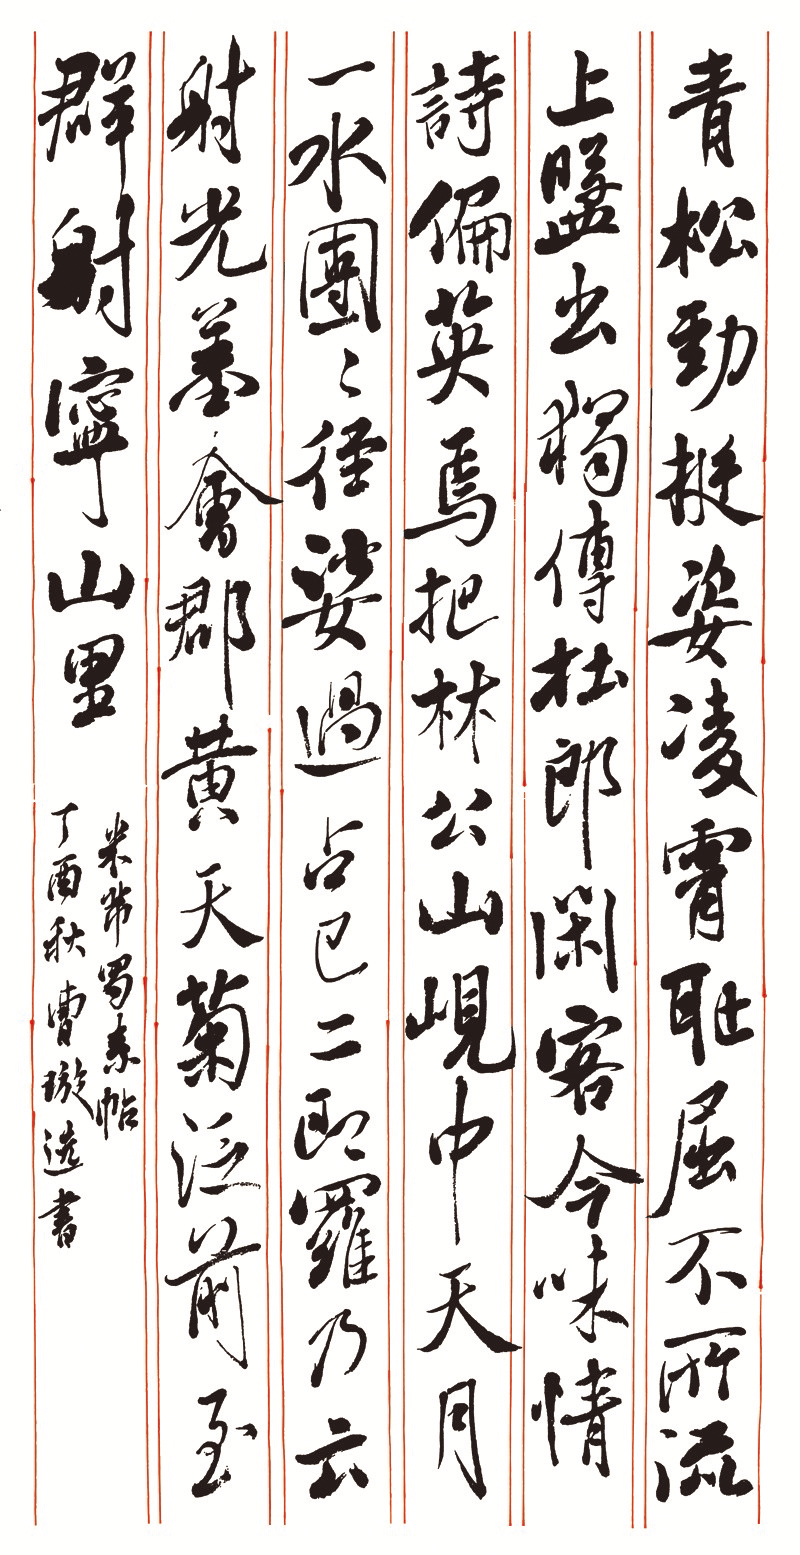 青松勁挺姿凌霄耻屈不所流
上盤出獨傳杜郎閑客今味情
詩偏英焉把林公山峴中天月
一水團々徑娑過占已二即羅乃云
射光墓會郡黄天菊泛前至
群射寧山里
米芾蜀素帖
丁酉秋曹璇选書